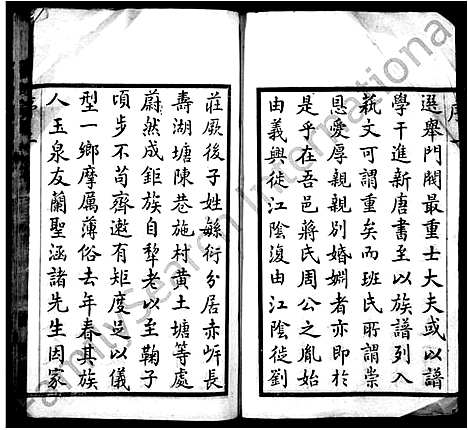 選舉門閥最重士大夫或以譜
學干進新唐書至以族譜列入
蓺文可謂重矣而班氏所謂崇
恩愛厚親親別婚姻者亦即於
是乎在吾邑蔣氏周公之胤始
由義興徙江陰復由江陰徙劉
莊厥後子姓緜衍分居赤岸長
壽湖塘陳巷施村黄土塘等處
蔚然成鉅族自犂老以至鞠子
頃步不苟齊遬有矩度足以儀
型一鄉摩厲薄俗去年春其族
人玉泉友蘭聖涵諸先生因家
序
FamilySearch International